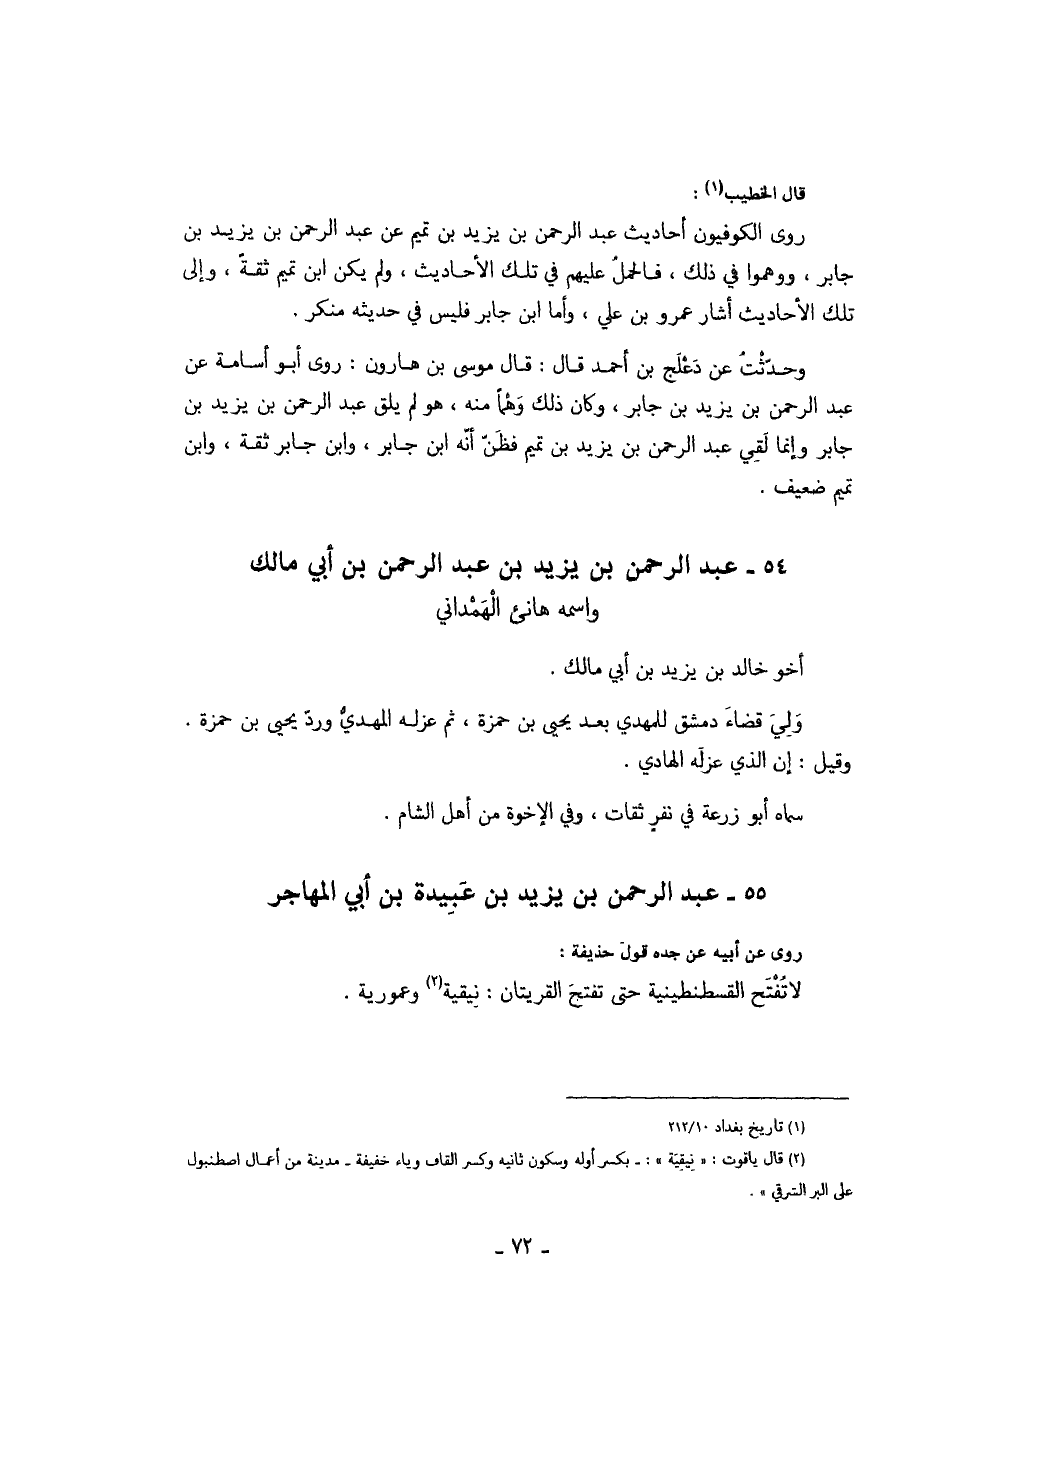 قال الخطيب(١) :
روى الكوفيون أحاديث عبد الرحمن بن يزيد بن تميم عن عبد الرحمن بن يزيد بن
جابر ، ووهموا في ذلك ، فالحملُ عليهم في تلك الأحاديث ، ولم يكن ابن تميم ثقةً ، وإلى
تلك الأحاديث أشار عمرو بن علي ، وأما ابن جابر فليس في حديثه منكر .
وحدّثْتُ عن دَعْلَج بن أحمد قال : قال موسى بن هارون : روى أبو أسامة عن
عبد الرحمن بن يزيد بن جابر ، وكان ذلك وَهْماً منه ، هو لم يلق عبد الرحمن بن يزيد بن
جابر وإنما لَقِي عبد الرحمن بن يزيد بن تميم فظَنّ أنّه ابن جابر ، وابن جابر ثقة ، وابن
تميم ضعيف .
٥٤ ـ عبد الرحمن بن يزيد بن عبد الرحمن بن أبي مالك
واسمه هانئ الْهَمْداني
أخو خالد بن يزيد بن أبي مالك .
وَلِيَ قضاءَ دمشق للمهدي بعد يحيى بن حمزة ، ثم عزله المهديُّ وردّ يحيى بن حمزة .
وقيل : إن الذي عزلَه الهادي .
سماه أبو زرعة في نفرٍ ثقات ، وفي الإخوة من أهل الشام .
٥٥ ـ عبد الرحمن بن يزيد بن عَبِيدة بن أبي المهاجر
روى عن أبيه عن جده قولَ حذيفة :
لاتُفْتَح القسطنطينية حتى تفتحَ القريتان : نِيقية(٢) وعمورية .
(١) تاريخ بغداد ٢١٢/١٠
(٢) قال ياقوت : « نِيقِيَة » : ـ بكسر أوله وسكون ثانيه وكسر القاف وياء خفيفة ـ مدينة من أعمال اصطنبول
على البر الشرقي » .
ـ ٧٢ ـ